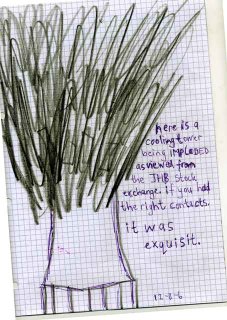 here is a
cooling tower
being IMPLODED
as viewed from
the JHB Stock
exchange. if you had
the right contacts.
it was
exquisit.
12-8-6